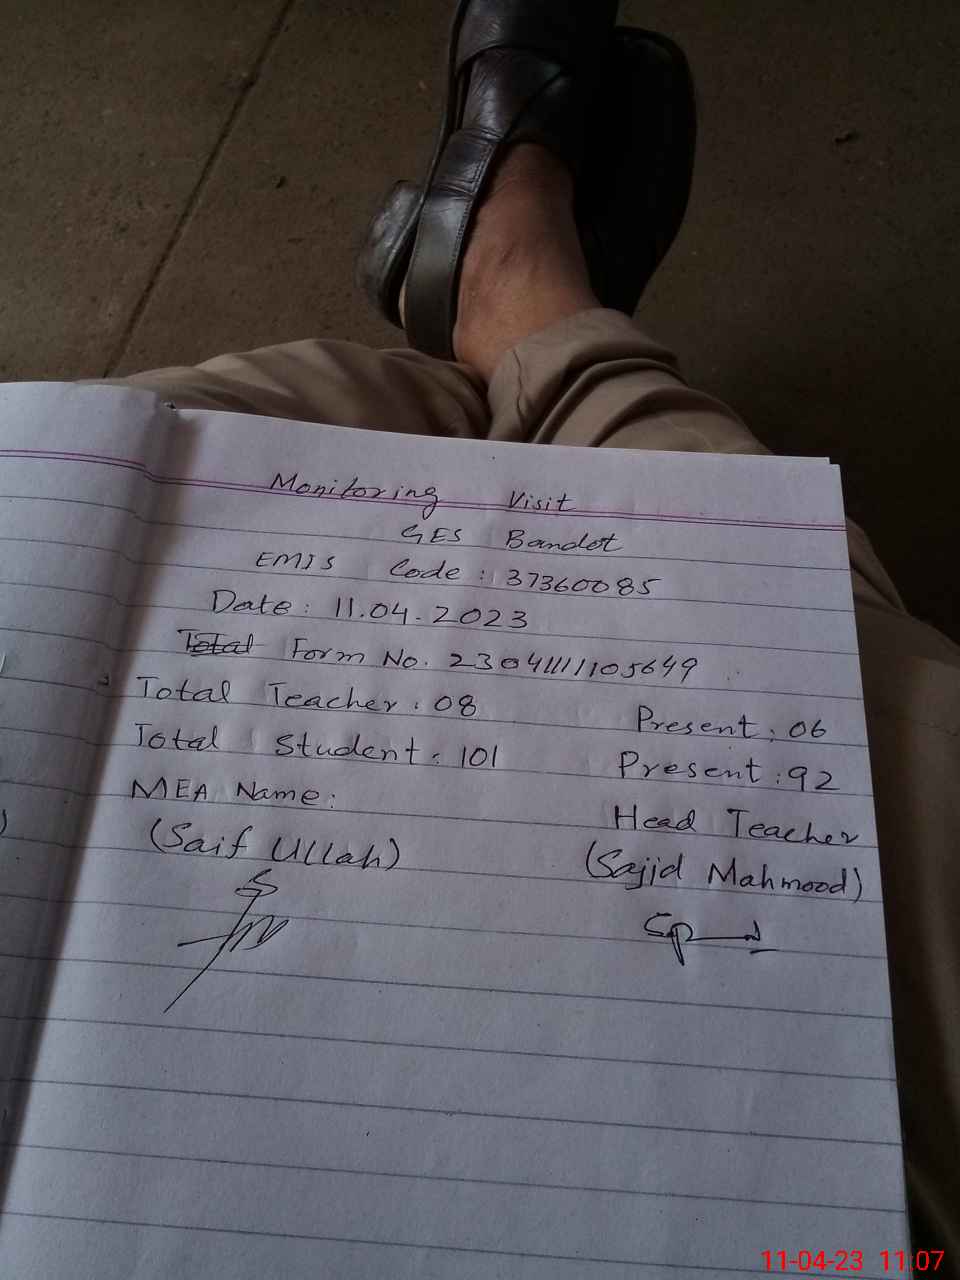 Monitoring Visit
GES Bandot
EMIS Code : 37360085
Date : 11.04.2023
Total Form No. 23041111105649
Total Teacher : 08 Present : 06
Total Student : 101 Present : 92
MEA Name : Head Teacher
(Saif Ullah) (Sajid Mahmood)
11-04-23 11:07